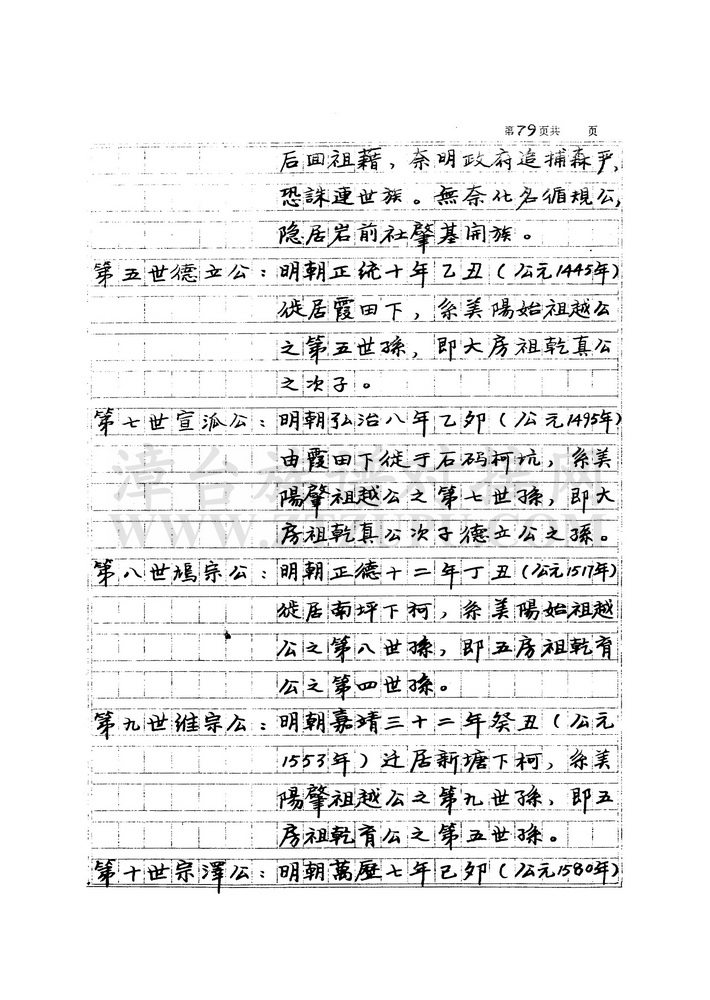 第79页共 页
后回祖籍，奈明政府追捕森严，
恐誅連世族。無奈化名循規公，
隐居岩前社肇基開族。
第五世德立公：明朝正统十年乙丑（公元1445年）
徙居霞田下，系美陽始祖越公
之第五世孫，即大房祖乾真公
之次子。
第七世宣派公：明朝弘治八年乙卯（公元1495年）
由霞田下徙于石码柯坑，系美
陽肇祖越公之第七世孫，即大
房祖乾真公次子德立公之孫。
第八世鳩宗公：明朝正德十二年丁丑（公元1517年）
徙居南坪下柯，系美陽始祖越
公之第八世孫，即五房祖乾育
公之第四世孫。
第九世维宗公：明朝嘉靖三十二年癸丑（公元
1553年）迁居新塘下柯，系美
陽肇祖越公之第九世孫，即五
房祖乾育公之第五世孫。
第十世宗澤公：明朝萬歷七年己卯（公元1580年）
漳台族谱对接网